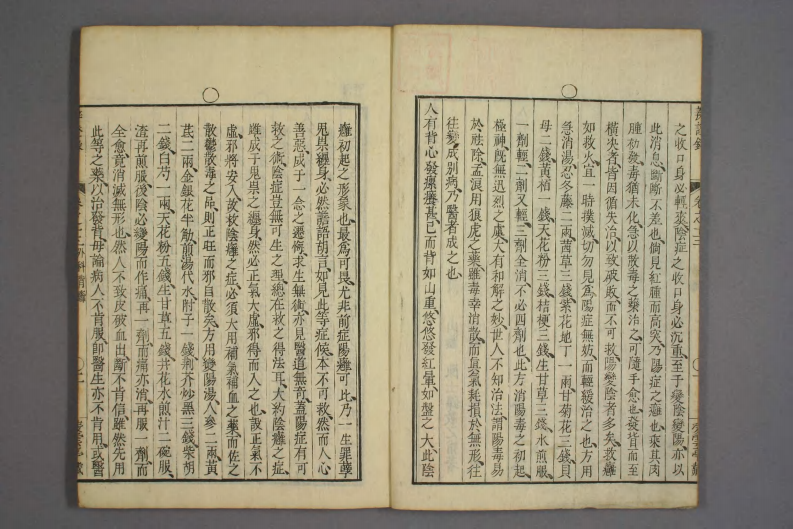 之收口身必輕爽陰症之收口身必沉重至于變陰變陽亦以
此消息斷斷不差也倘見紅腫而高突乃陽症之癰也乘其內
膿初發毒猶未化急以散毒之藥治之可隨手愈也發背而至
橫決者皆因循失治以致破敗而不可救陽變陰者多矣救癰
如救火宜一時撲滅切勿見為陽症無妨而輕緩治之也方用
急消湯忍冬藤二兩茜草三錢紫花地丁一兩甘菊花三錢貝
母二錢黃栢一錢天花粉三錢桔梗三錢生甘草三錢水煎服
一劑輕二劑又輕三劑全消不必四劑也此方消陽毒之初起
極神既無迅烈之慮大有和解之妙世人不知治法謂陽毒易
於祛除孟浪用狼虎之藥雖毒幸消散而真氣耗損於無形往
往變成別病乃醫者成之也
人有背心發瘰癢甚已而背如山重悠悠發紅暈如盤之大此陰
癰初起之形象也最為可畏尤非前症陽癰可比乃一生罪孽
鬼祟纏身必然譫語胡言如見此等症候本不可救然而人心
善惡成于一念之遷悔求生無術亦見醫道無奇蓋陽症有可
救之術陰症豈無可生之理總在救之得法耳大約陰癰之症
雖成于鬼祟之纏身然必正氣大虛邪得而入之也設正氣不
虛邪將安入故救陰癰之症必須大用補氣補血之藥而佐之
散鬱散毒之品則正旺而邪自散矣方用變陽湯人參二兩黃
芪二兩金銀花半觔煎湯代水附子一錢荊芥炒黑三錢柴胡
二錢白芍一兩天花粉五錢生甘草五錢井花水煎汁二碗服
渣再煎服後陰必變陽而作痛再一劑而痛亦消再服一劑而
全愈竟消滅無形也然人不致皮破血出斷不肯信雖然先用
此等之藥以治發背毋論病人不肯服即醫生亦不肯用或醫